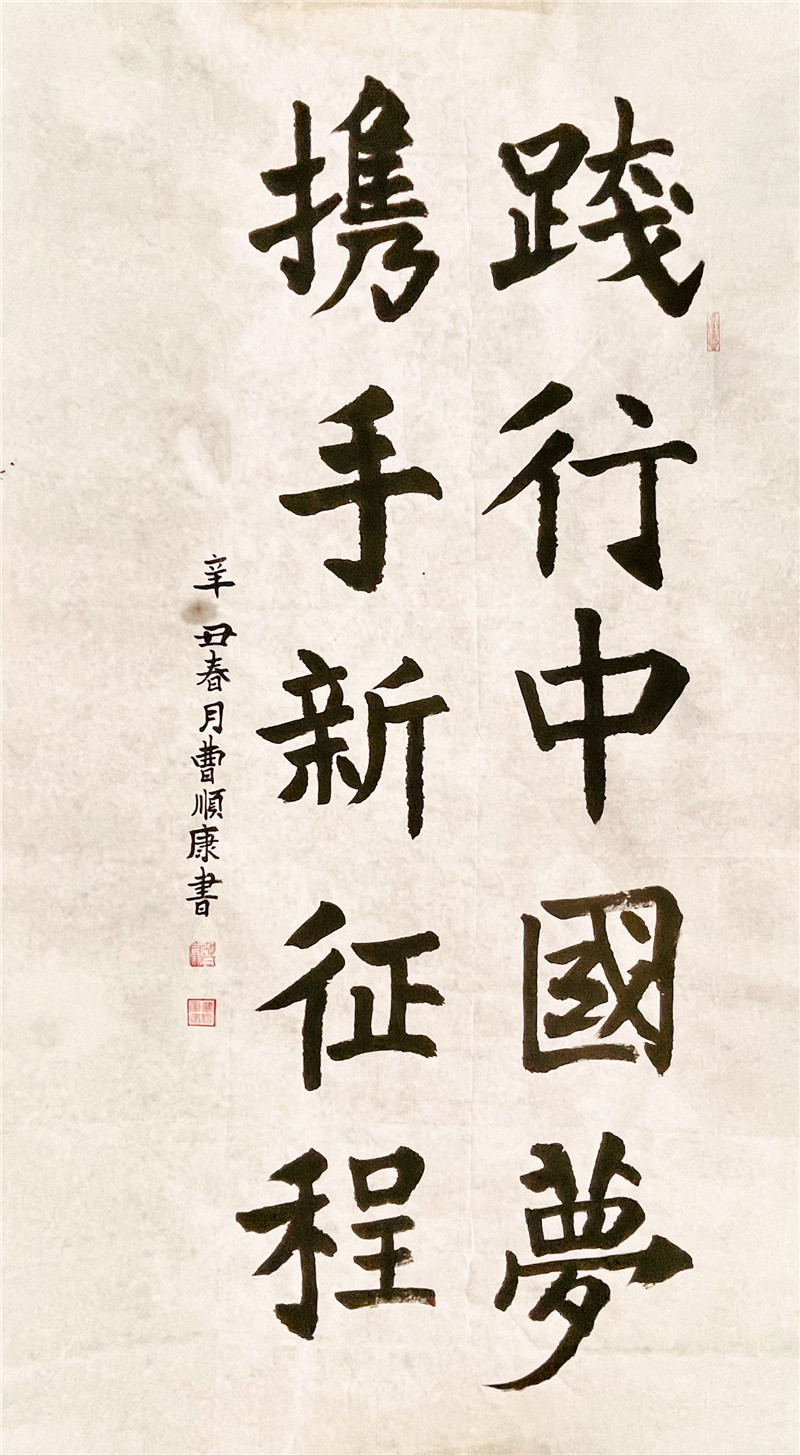 踐行中國夢
携手新征程
辛丑春月曹順康書